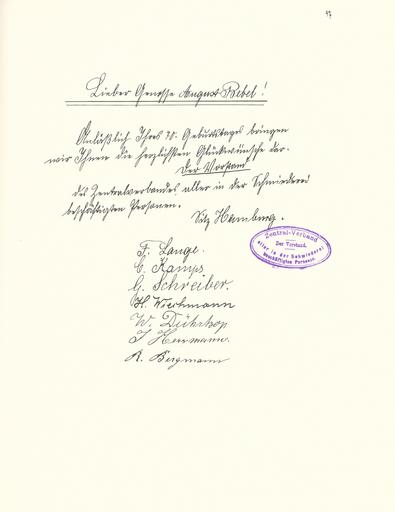 47
Lieber Genosse August Bebel!
Anläßlich Ihres 70. Geburtstages bringen
wir Ihnen die herzlichsten Glückwünsche dar.
Der Vorstand
des Zentralverbandes aller in der Schmiederei
beschäftigten Personen.
Sitz Hamburg.
Zentral-Verband
Der Vorstand.
aller in der Schmiederei
beschäftigten Personen
F. Lange.
C. Kamps
G. Schreiber.
H. Wiechmann
W. Dührkop
J Herrmann.
R. Bergmann